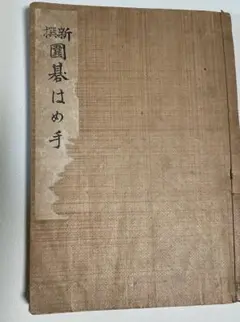 新撰
圍碁はめ手